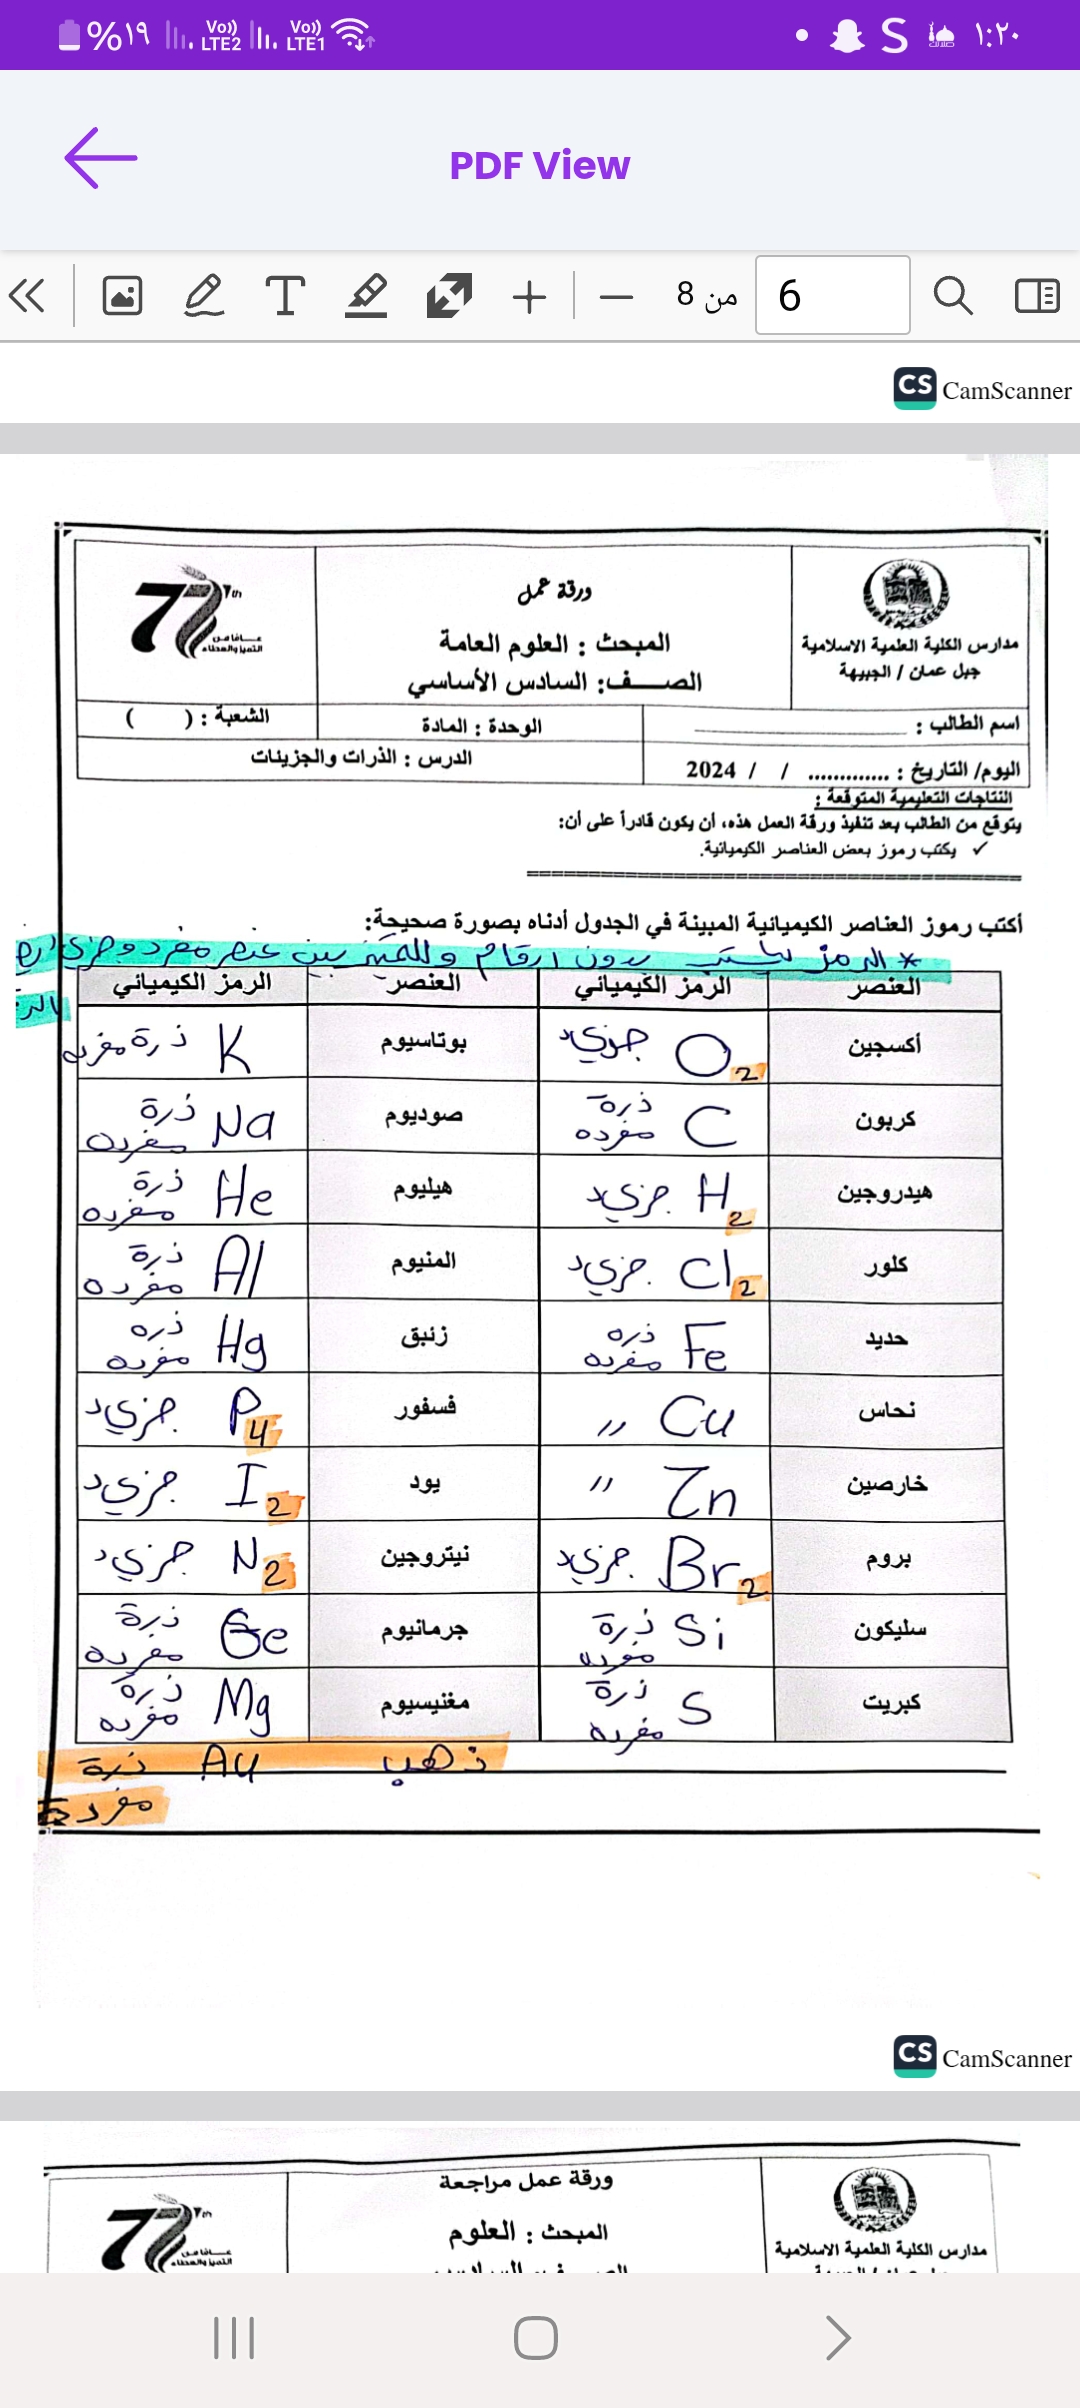 %١٩ Vo)) LTE2 Vo)) LTE1 S ١:٢٠
PDF View
8 من 6
CS CamScanner
مدارس الكلية العلمية الاسلامية
جبل عمان / الجبيهة
ورقة عمل
المبحث : العلوم العامة
الصــف: السادس الأساسي
77th
عــامًا من
التميز والعطاء
اسم الطالب :
الوحدة : المادة
الشعبة : ( )
اليوم/ التاريخ : ............. / / 2024
الدرس : الذرات والجزيئات
النتاجات التعليمية المتوقعة :
يتوقع من الطالب بعد تنفيذ ورقة العمل هذه، أن يكون قادراً على أن:
✓ يكتب رموز بعض العناصر الكيميائية.
أكتب رموز العناصر الكيميائية المبينة في الجدول أدناه بصورة صحيحة:
* الرمز يكتب بدون ارقام وللتمييز بين عنصر مفرد وجزيء
العنصر الرمز الكيميائي العنصر الرمز الكيميائي
أكسجين O2 جزيء بوتاسيوم K ذرة مفرده
كربون C ذرة مفرده صوديوم Na ذرة مفرده
هيدروجين H2 جزيء هيليوم He ذرة مفرده
كلور Cl2 جزيء المنيوم Al ذرة مفرده
حديد Fe ذره مفرده زئبق Hg ذره مفرده
نحاس Cu " فسفور P4 جزيء
خارصين Zn " يود I2 جزيء
بروم Br2 جزيء نيتروجين N2 جزيء
سليكون Si ذرة مفرده جرمانيوم Ge ذرة مفرده
كبريت S ذرة مفرده مغنيسيوم Mg ذرة مفرده
ذهب Au ذرة
مفردة
CS CamScanner
مدارس الكلية العلمية الاسلامية
ورقة عمل مراجعة
المبحث : العلوم
77th